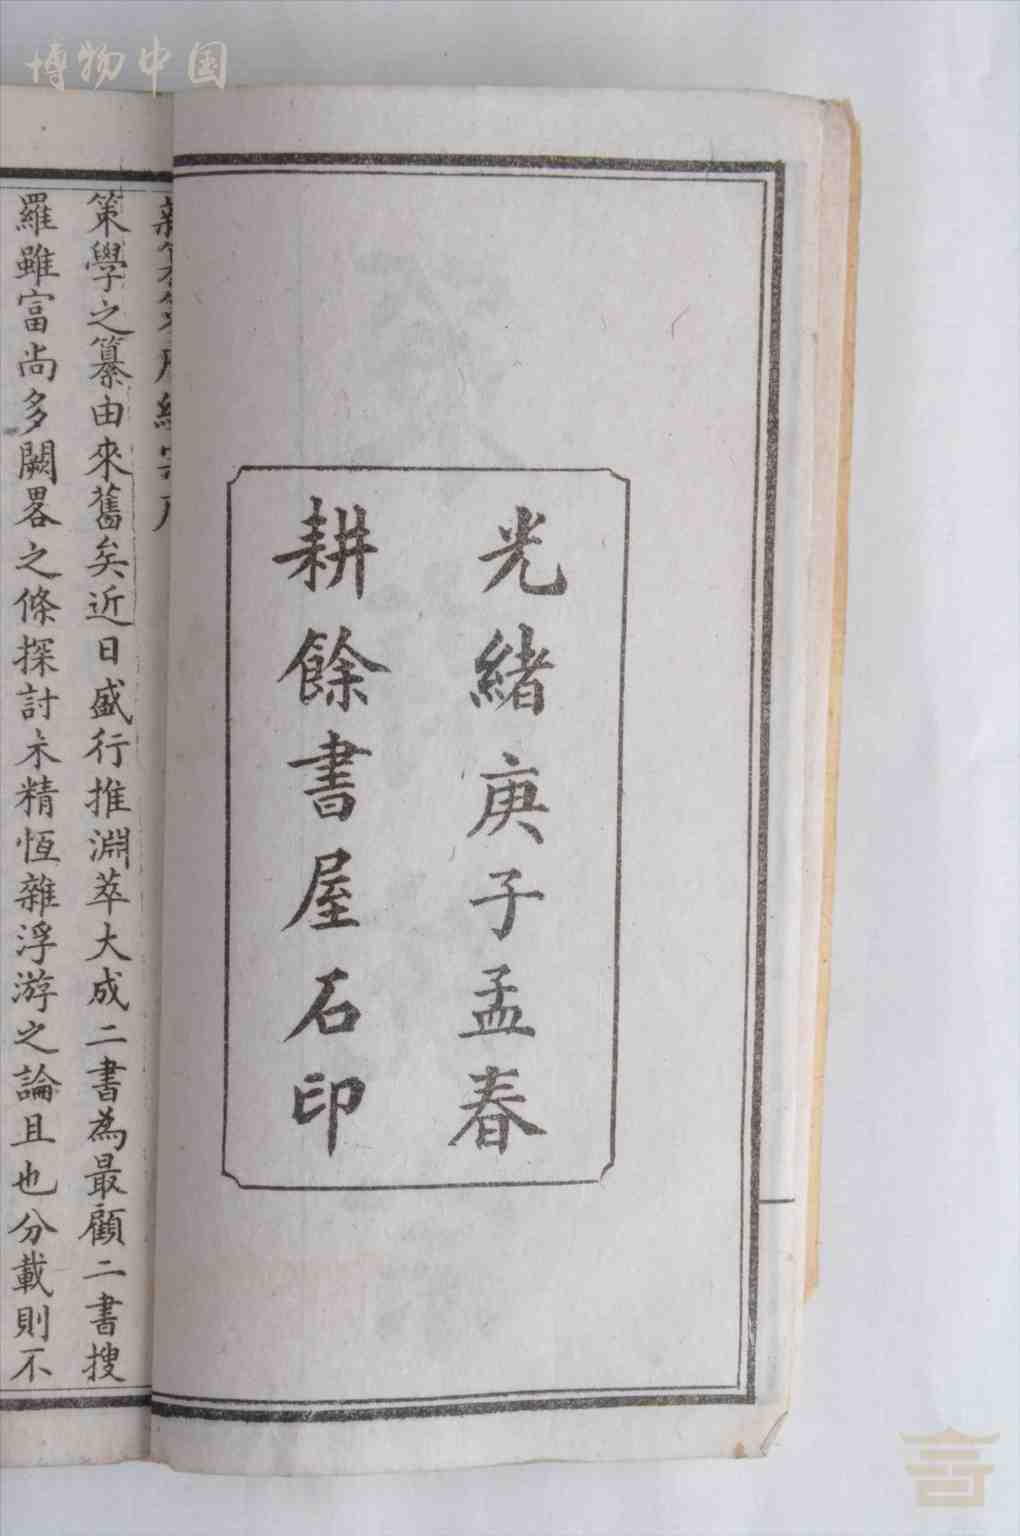 博物中国
光緒庚子孟春
耕餘書屋石印
策學之纂由來舊矣近日盛行推淵萃大成二書為最顧二書搜
羅雖富尚多闕畧之條探討未精恆雜浮游之論且也分載則不